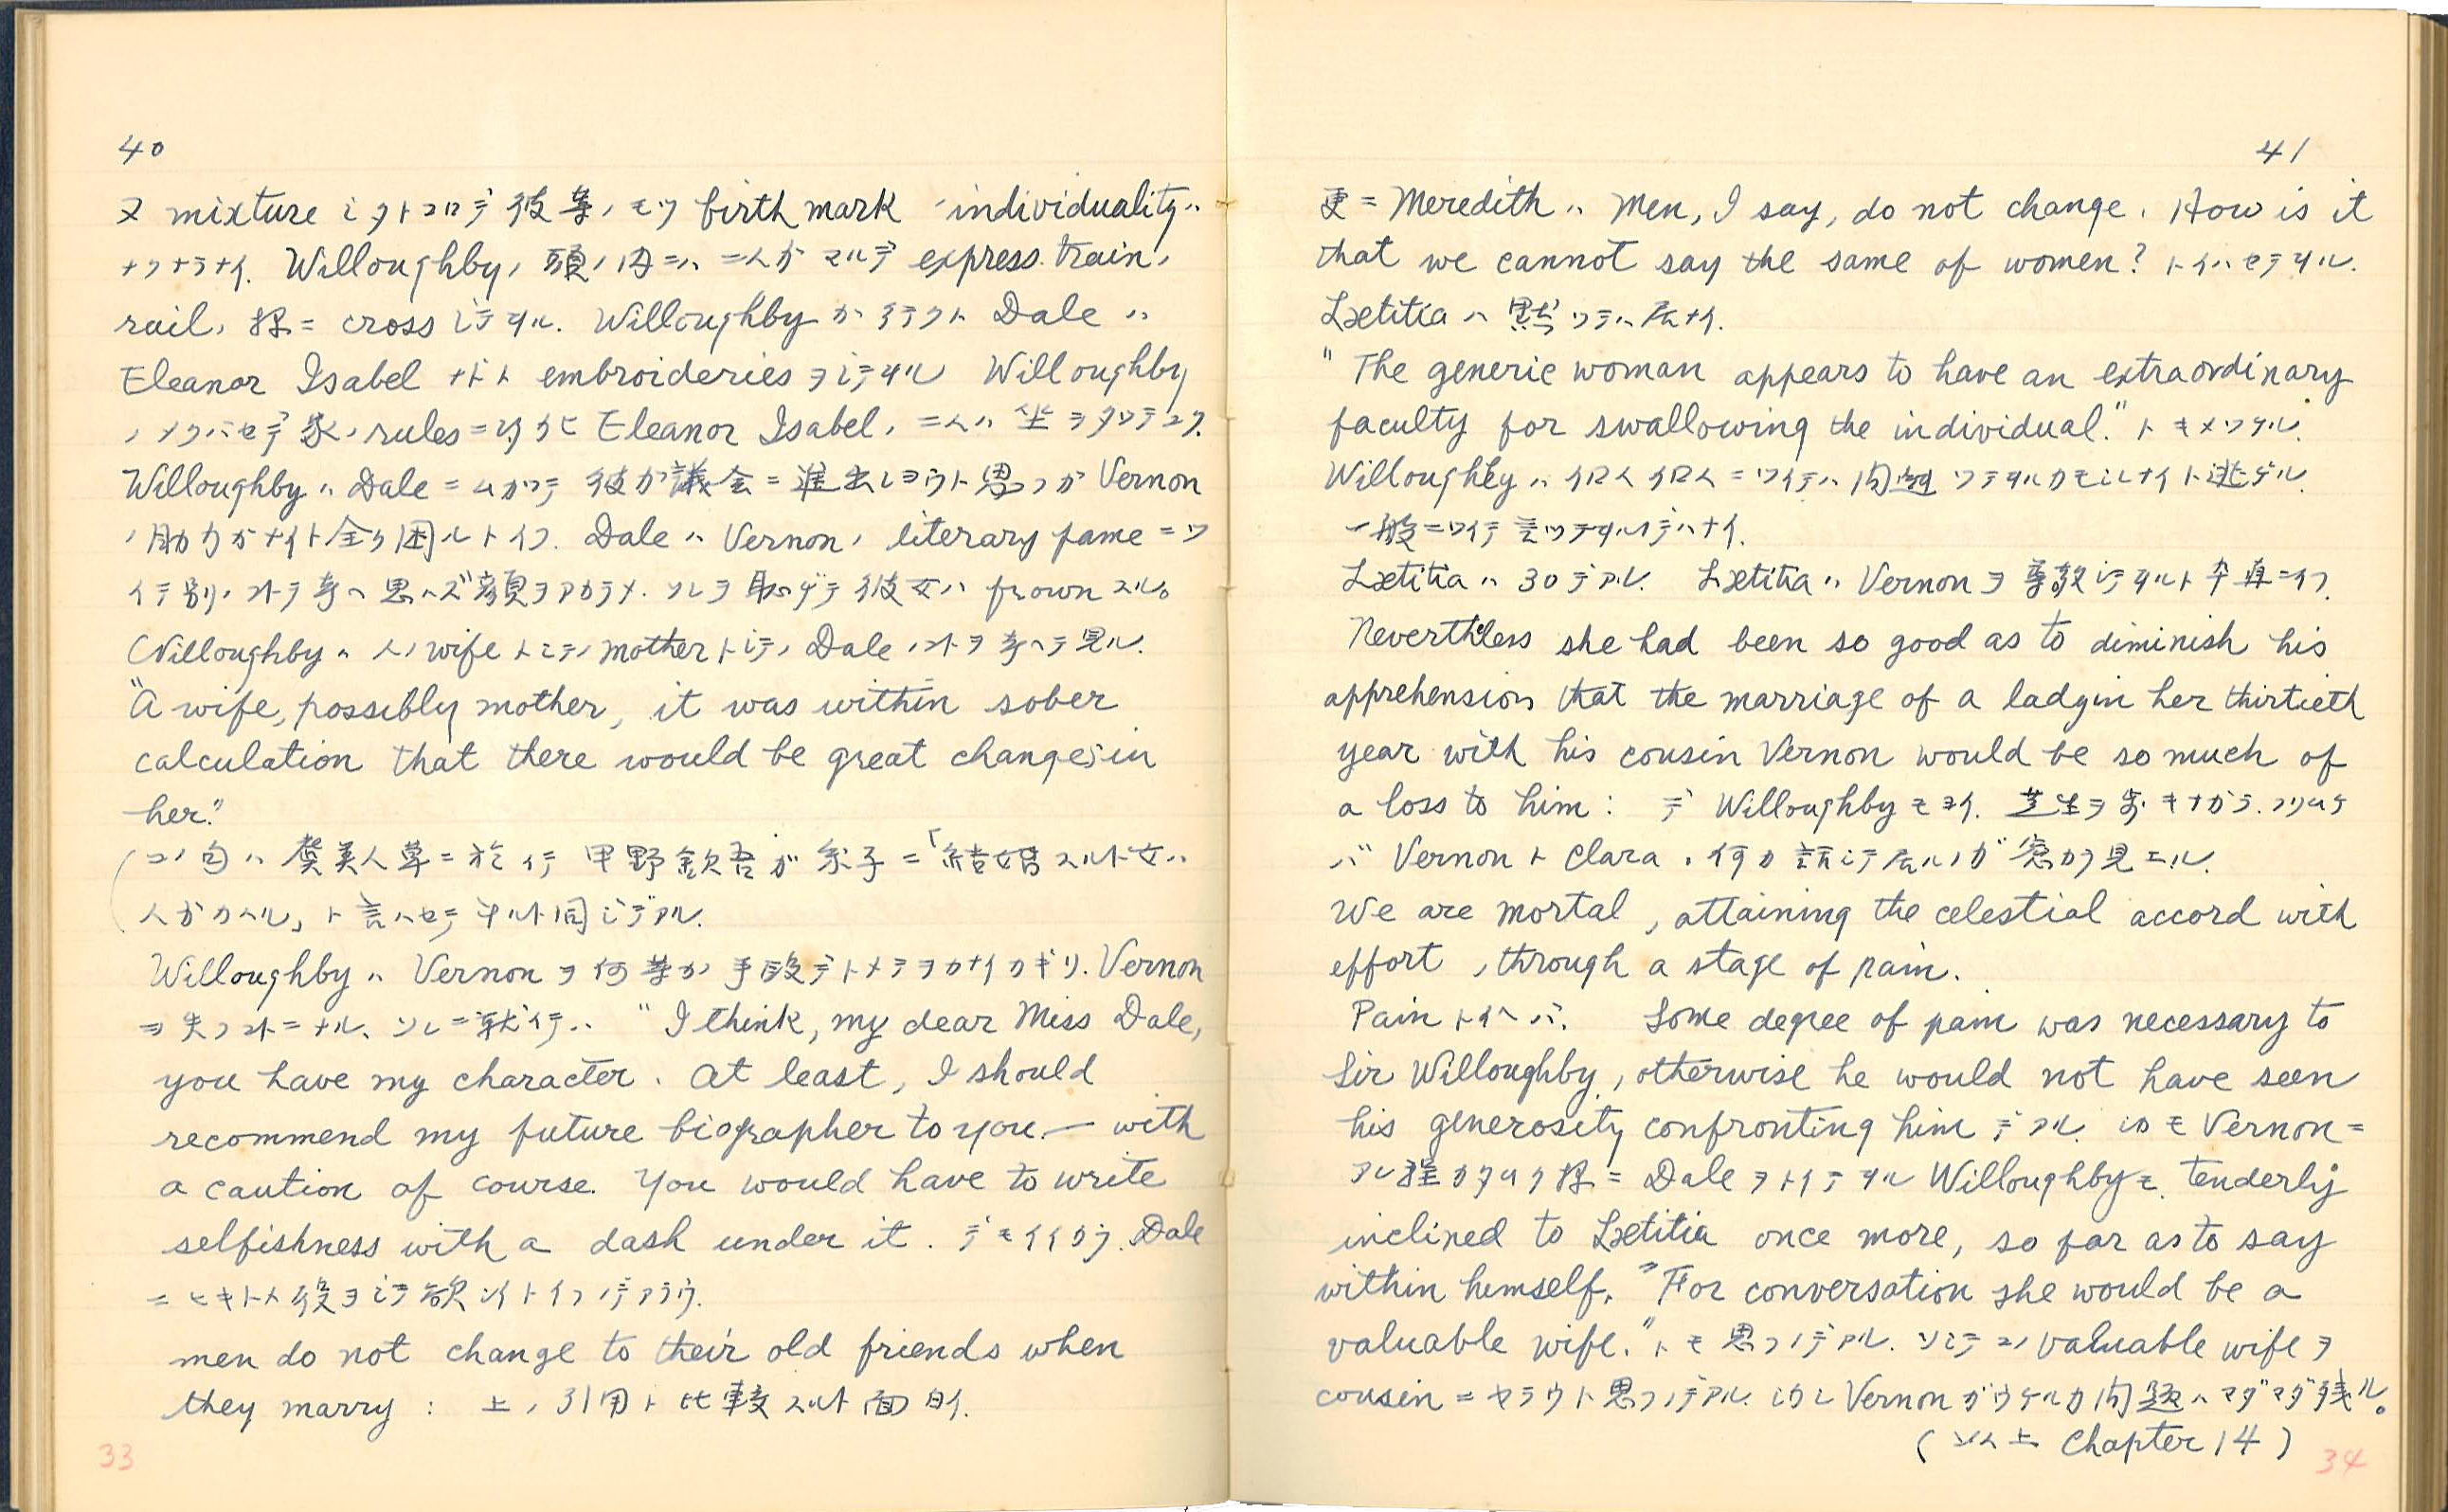 40
又 mixture シタトコロデ彼等ノモツ birth mark ノ individuality ハ
ナクナラナイ. Willoughby ノ頭ノ内ニハ 二人ガマルデ express train ノ
rail ノ様ニ cross シテヰル. Willoughby ガ行クト Dale ハ
Eleanor Isabel ナドト embroideries ヲシテヰル Willoughby
ノメクバセデ家ノ rules ニヨリ Eleanor Isabel ノ二人ハ坐ヲタツテユク.
Willoughby ハ Dale ニムカツテ 彼ガ議会ニ進出シヨウト思フガ Vernon
ノ助力ガナイト全ク困ルトイフ. Dale ハ Vernon ノ literary fame ニツ
イテ別ノコトヲ考ヘ思ハズ顔ヲアカラメ. ソレヲ 彼女ハ frown スル。
Willoughby ハ 人ノ wife トシテノ mother トシテノ Dale ノコトヲ考ヘテ見ル.
"A wife, possibly mother, it was within sober
calculation that there would be great changes in
her."
(コノ句ハ 虞美人草ニ於イテ 甲野欽吾ガ糸子ニ「結婚スルト女ハ
人ガカハル」ト言ハセテヰルト同ジデアル.
Willoughby ハ Vernon ヲ何等カノ手段デトメテヲカナイカギリ. Vernon
ヲ失フコトニナル、ソレニ就イテハ "I think, my dear Miss Dale,
you have my character. At least, I should
recommend my future biographer to you — with
a caution of course. You would have to write
selfishness with a dash under it. デモイイカラ. Dale
ニヒキトメ役ヲシテ欲シイトイフノデアラウ.
men do not change to their old friends when
they marry : 上ノ引用ト比較スルト面白イ.
33
41
更ニ Meredith ハ Men, I say, do not change. How is it
that we cannot say the same of women? トイハセテヰル.
Lætitia ハ 黙ツテハ居ナイ.
"The generic woman appears to have an extraordinary
faculty for swallowing the individual." トキメツケル.
Willoughby ハ 個人個人ニツイテハ間違ツテヰルカモシレナイト逃ゲル.
一般ニツイテ言ツテヰルノデハナイ.
Lætitia ハ 30デアル. Lætitia ハ Vernon ヲ尊敬シテヰルト卒直ニイフ.
Nevertheless she had been so good as to diminish his
apprehension that the marriage of a lady in her thirtieth
year with his cousin Vernon would be so much of
a loss to him : デ Willoughby モヨイ. 芝生ヲ歩キナガラ. フリムケ
バ Vernon ト Clara ノ何カ話シテ居ルノガ窓カラ見エル.
We are mortal, attaining the celestial accord with
effort, through a stage of pain.
Pain トイヘバ. Some degree of pain was necessary to
Sir Willoughby, otherwise he would not have seen
his generosity confronting him デアル. シカモ Vernon ニ
アル程カタク様ニ Dale ヲトイテヰル Willoughby モ. tenderly
inclined to Lætitia once more, so far as to say
within himself. "For conversation she would be a
valuable wife." トモ思フノデアル. ソシテコノ valuable wife ヲ
cousin ニヤラウト思フノデアル. シカシ Vernon ガウケルカ問題ハマダマダ残ル。
(以上 Chapter 14)
34